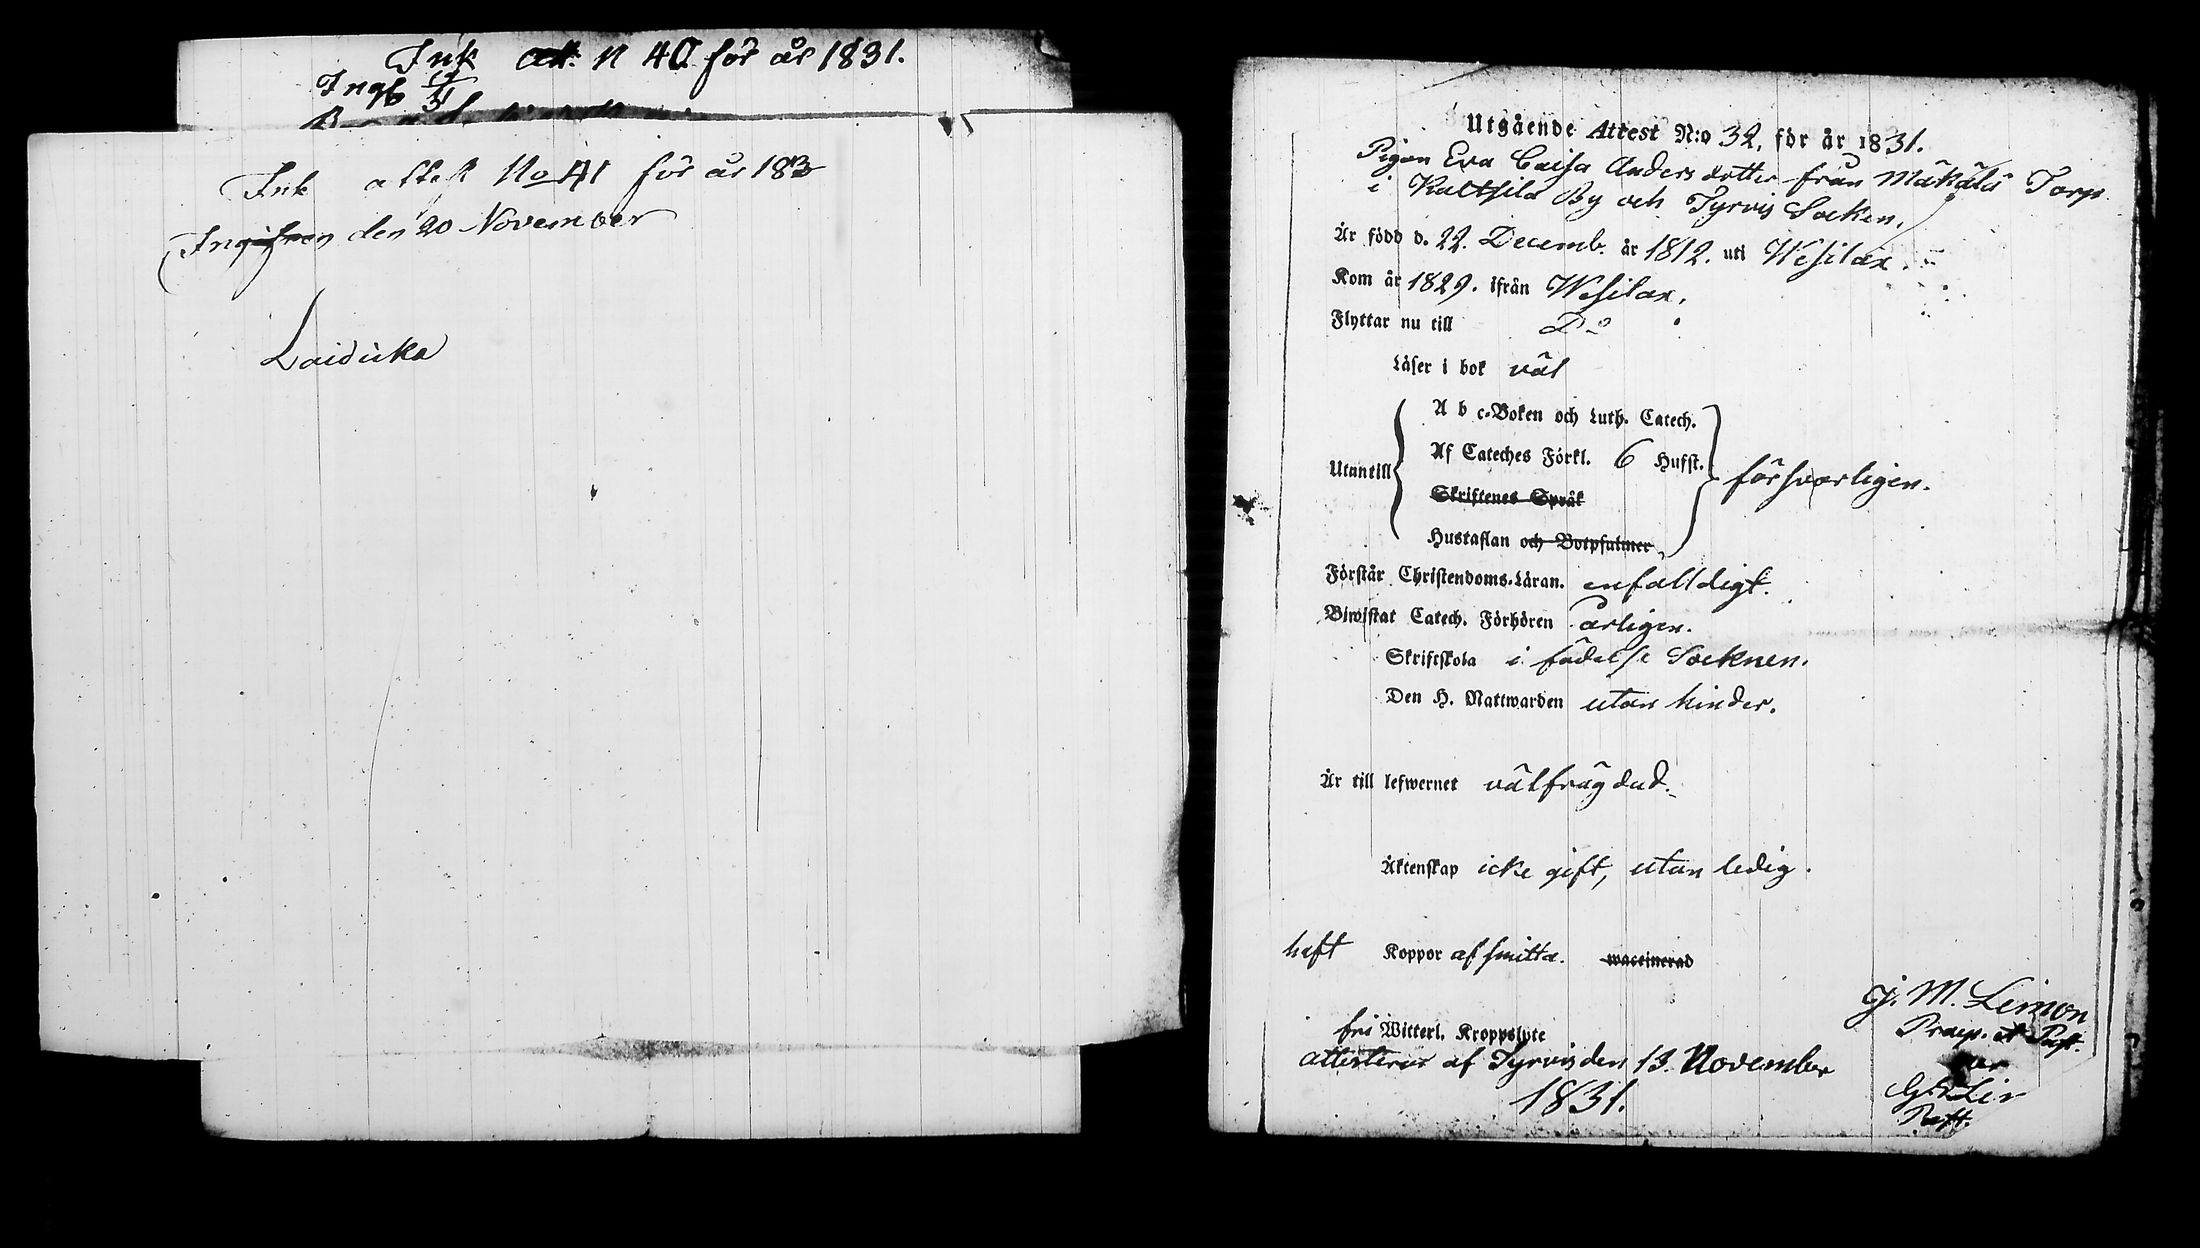 Ink att. N 40 för år 1831.
Ingb
Ink attest No 41 för år 183
Ingifven den 20 November
Laiduka
Utgående Attest N:o 32, för år 1831.
Pigan Eva Caisa Anders dotter från Mäkälä Torp
i Kaltsila By och Tyrvis Socken,
Är född d. 22. Decemb. år 1812. uti Wesilax.
Kom år 1829. ifrån Wesilax,
Flyttar nu till Do
Läser i bok väl
A b c-Boken och Luth. Catech.
Af Cateches Förkl. 6 Hufst.
Utantill försvarligen.
Skriftenes Språk
Hustaflan och Botpsalmer
Förstår Christendoms-Läran. enfalldigt.
Biwistat Catech. Förhören årligen.
Skriftskola i födelse Socknen.
Den H. Nattwarden utan hinder.
Är till lefwernet välfrägdad.
Äktenskap icke gift, utan ledig.
haft Koppor af smitta. waccinerad
fri Witterl. Kroppslyte
attesterar af Tyrvis den 13. November
1831.
G. M. Lemon
Præp. et Past.
G. Lir
Past.